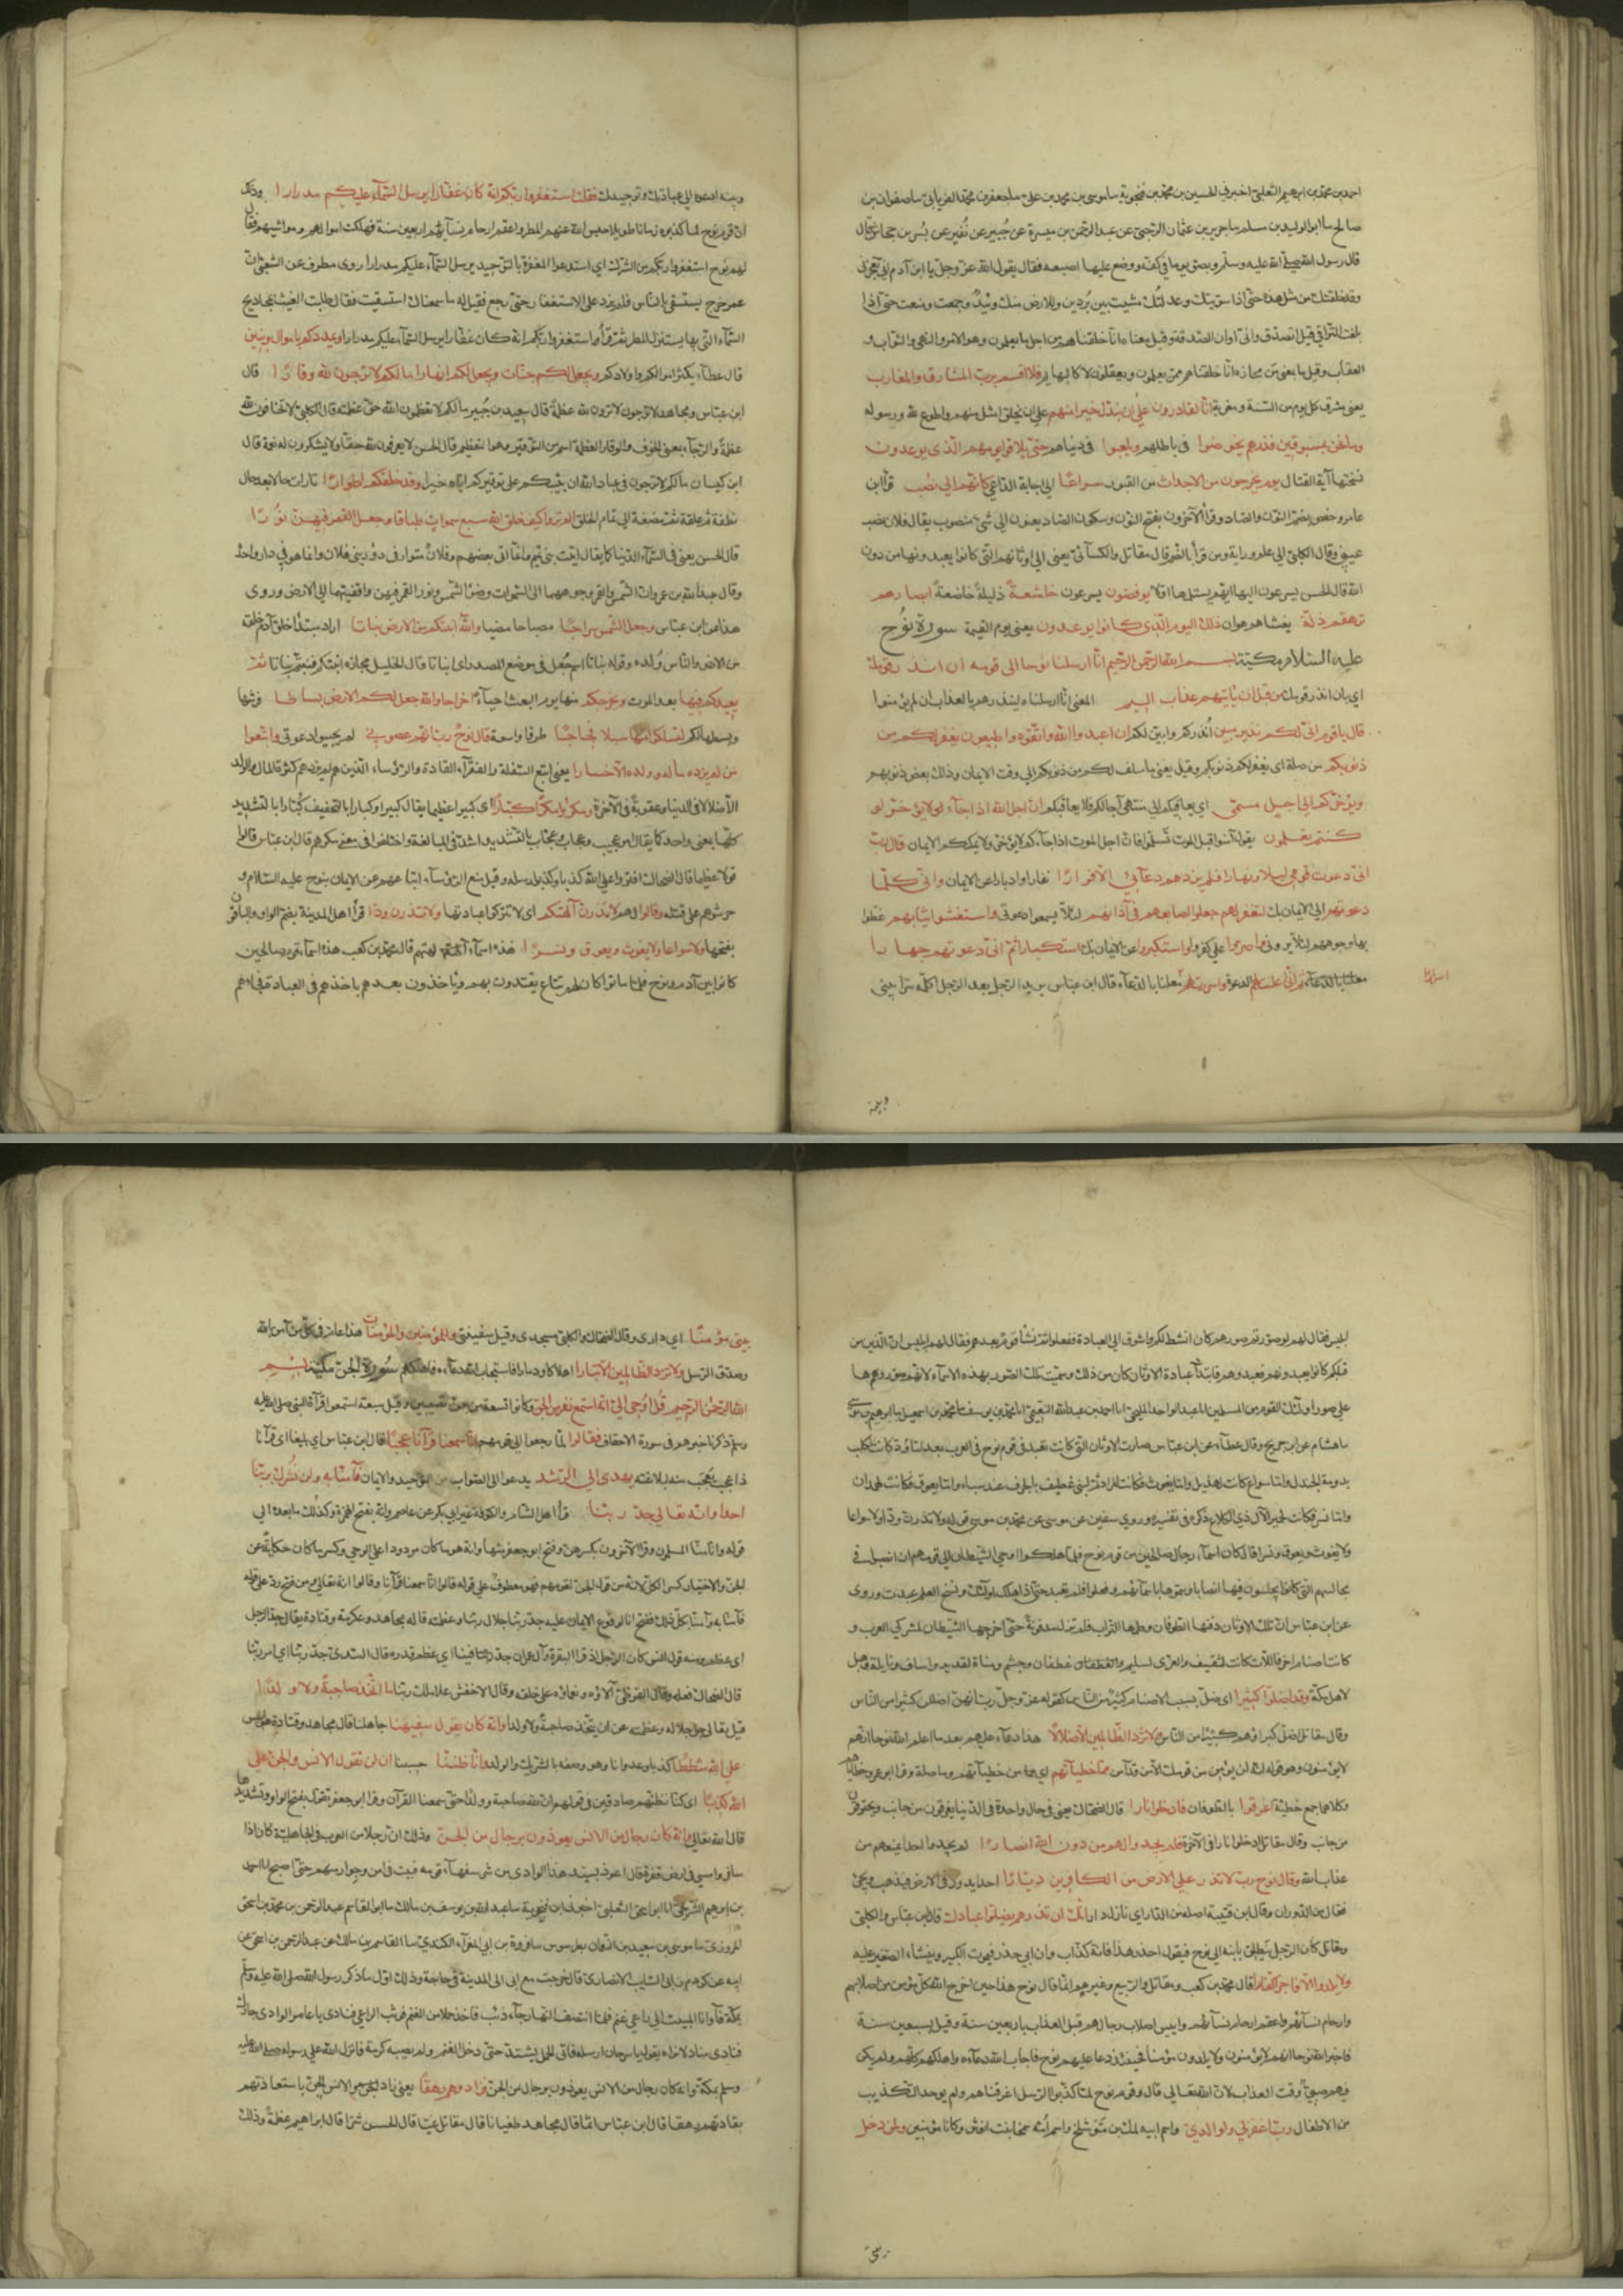 احمد بن محمد بن ابرهيم الثعلبى اخبرنى الحسين بن محمد بن فنجوية سا موسى بن محمد بن على سا جعفر بن محمد الفريابى سا صفوان بن
صالح سا الوليد بن مسلم سا جرير بن عثمان الرحبى عن عبد الرحمن بن ميسرة عن جبير بن نفير عن بسر بن جحاش قال
قال رسول الله صلى الله عليه وسلم وبصق يوما فى كفه ووضع عليها اصبعه فقال يقول الله عز وجل يا ابن آدم انى تعجزنى
وقد خلقتك من مثل هذه حتى اذا سويتك وعدلتك مشيت بين بردين وللارض منك وئيد وجمعت ومنعت حتى اذا
بلغت التراقى قلت اتصدق وانى اوان الصدقة وقيل معناه انا خلقناهم من اجل ما يعلمون وهو الامر والنهى والثواب و
العقاب وقيل ما بمعنى من مجازه انا خلقناهم ممن يعلمون ويعقلون لا كالبهايم فلا اقسم برب المشارق والمغارب
يعنى مشرق كل يوم من السنة ومغربه انا لقادرون على ان نبدل خيرا منهم على ان نخلق امثل منهم واطوع لله ورسوله
وما نحن بمسبوقين فذرهم يخوضوا فى باطلهم ويلعبوا فى دنياهم حتى يلاقوا يومهم الذى يوعدون
نسختها آية القتال يوم يخرجون من الاجداث من القبور سراعًا الى اجابة الداعى كانهم الى نصب قرأ ابن
عامر وحفص بضم النون والصاد وقرأ الآخرون بفتح النون وسكون الصاد يعنون الى شئ منصوب يقال فلان نصب
عينى وقال الكلبى الى علم وراية ومن قرأ بالضم قال مقاتل والكسآئى يعنى الى اوثانهم التى كانوا يعبدونها من دون
الله قال الحسن يسرعون اليها ايهم يستلمها اولا يوفضون يسرعون خاشعةً ذليلةً خاضعةً ابصارهم
ترهقهم ذلة يغشاهم هوان ذلك اليوم الذى كانوا يوعدون يعنى يوم القيمة سورة نوح
عليه السلام مكية بسم الله الرحمن الرحيم انا ارسلنا نوحا الى قومه ان انذر قومك
اى بان انذر قومك من قبل ان ياتيهم عذاب اليم المعنى انا ارسلناه لينذرهم بالعذاب ان لم يؤمنوا
قال ياقوم انى لكم نذير مبين انذركم وابين لكم ان اعبدوا الله واتقوه واطيعون يغفر لكم من
ذنوبكم من صلة اى يغفر لكم ذنوبكم وقيل يعنى ما سلف لكم من ذنوبكم الى وقت الايمان وذلك بعض ذنوبهم
ويؤخركم الى اجل مسمى اى يعافيكم الى منتهى آجالكم فلا يعاقبكم ان اجل الله اذا جآء لا يؤخر لو
كنتم تعلمون يقول آمنوا قبل الموت تسلموا فان اجل الموت اذا جآءكم لا يؤخر ولا يمكنكم الايمان قال رب
انى دعوت قومى ليلا ونهارا فلم يزدهم دعآئى الا فرارًا نفارا وادبارا عن الايمان وانى كلما
دعوتهم الى الايمان بك لتغفر لهم جعلوا اصابعهم فى آذانهم لئلا يسمعوا دعوتى واستغشوا ثيابهم غطوا
بها وجوههم لئلا يرونى واصروا على كفرهم واستكبروا عن الايمان بك استكبارا ثم انى دعوتهم جهارا
معلنا بالدعآء ثم انى اعلنت لهم الدعوة واسررت لهم معلنا بالدعآء قال ابن عباس يريد الرجل بعد الرجل اكلمه سرا بينى
اسرارا
وبينه
وبينه ادعوه الى عبادتك وتوحيدك فقلت استغفروا ربكم انه كان غفارا يرسل السمآء عليكم مدرارا وذلك
ان قوم نوح لما كذبوه زمانا طويلا حبس الله عنهم المطر واعقم ارحام نسآئهم اربعين سنة فهلكت اموالهم ومواشيهم فقال
لهم نوح استغفروا ربكم من الشرك اى استدعوا المغفرة بالتوحيد يرسل السمآء عليكم مدرارا روى مطرف عن الشعبى ان
عمر خرج يستسقى بالناس فلم يزد على الاستغفار حتى رجع فقيل له ما سمعناك استسقيت فقال طلبت الغيث بمجاديح
السمآء التى بها يستنزل المطر ثم قرأ استغفروا ربكم انه كان غفارا يرسل السمآء عليكم مدرارا ويمددكم باموال وبنين
قال عطآء يكثر اموالكم واولادكم ويجعل لكم جنات ويجعل لكم انهارا ما لكم لا ترجون لله وقارًا قال
ابن عباس ومجاهد لا ترجون لا ترون لله عظمةً قال سعيد بن جبير ما لكم لا تعظمون الله حق عظمته قال الكلبى لا تخافون لله
عظمةً والرجآء بمعنى الخوف والوقار العظمة اسم من التوقير وهو التعظيم قال الحسن لا يعرفون لله حقا ولا يشكرون له نعمة قال
ابن كيسان ما لكم لا ترجون فى عبادة الله ان يثيبكم على توقيركم اياه خيرا وقد خلقكم اطوارًا تارات حالا بعد حال
نطفة ثم علقة ثم مضغة الى تمام الخلق الم تروا كيف خلق الله سبع سموات طباقا وجعل القمر فيهن نورًا
قال الحسن يعنى فى السمآء الدنيا كما يقال اتيت بنى تميم وانما اتى بعضهم وفلانٌ متوار فى دور بنى فلان وانما هو فى دار واحد
وقال عبد الله بن عمرو ان الشمس والقمر وجوههما الى السموات وضوء الشمس ونور القمر فيهن واقفيتهما الى الارض وروى
هذا عن ابن عباس وجعل الشمس سراجًا مصباحا مضيا والله انبتكم من الارض نباتا اراد مبتدأ خلق آدم خلقه
من الارض والناس ولده وقوله نباتا اسم جعل فى موضع المصدر اى انباتا قال الخليل مجازه انبتكم فنبتم نباتا ثم
يعيدكم فيها بعد الموت ويخرجكم منها يوم البعث احيآء اخراجا والله جعل لكم الارض بساطا فرشها
وبسطها لكم لتسلكوا منها سبلا فجاجًا طرقا واسعة قال نوح رب انهم عصونى لم يجيبوا دعوتى واتبعوا
من لم يزده ماله وولده الا خسارا يعنى اتبع السفلة والفقرآء القادة والرؤساء الذين لم يزدهم كثرة المال والولد
الا ضلالا فى الدنيا وعقوبة فى الآخرة ومكروا مكرًا كبارًا اى كبيرا عظيما يقال كبيرا وكبارا بالتخفيف كبارا بالتشديد
كلها بمعنى واحد كما يقال امر عجيب وعجاب وعجاب بالتشديد واشد فى المبالغة واختلفوا فى معنى مكرهم قال ابن عباس قالوا
قولا عظيما قال الضحاك افتروا على الله كذبا وكذبوا رسله وقيل منع الرؤسآء اتباعهم عن الايمان بنوح عليه السلام و
حرشوهم على قتله وقالوا لهم لا تذرن آلهتكم اى لا تتركوا عبادتها ولا تذرن ودًا قرأ اهل المدينة بضم الواو والباقون
بفتحها ولا سواعا ولا يغوث ويعوق ونسرًا هذه اسمآء آلهتهم قال محمد بن كعب هذه اسمآء قوم صالحين
كانوا بين آدم ونوح فلما ماتوا كان لهم تباع يقتدون بهم وياخذون بعدهم باخذهم فى العبادة فجاءهم
ابليس فقال لهم لو صورتم صورهم كان انشط لكم واشوق الى العبادة ففعلوا ثم نشأ قوم بعدهم فقال لهم ابليس ان الذين من
قبلكم كانوا يعبدونهم فعبدوهم فابتدآء عبادة الاوثان كان من ذلك وسميت تلك الصور بهذه الاسمآء لانهم صوروها
على صور اولئك القوم من المسلمين انا عبد الواحد المليحى انا احمد بن عبد الله النعيمى انا محمد بن يوسف نا محمد بن اسمعيل نا ابرهيم بن موسى
نا هشام عن ابن جريج وقال عطآء عن ابن عباس صارت الاوثان التى كانت تعبد فى قوم نوح فى العرب بعد اما ود كانت لكلب
بدومة الجندل واما سواع كانت لهذيل واما يغوث فكانت لمراد ثم لبنى غطيف بالجرف عند سباء واما يعوق فكانت لهمدان
واما نسر فكانت لحمير لآل ذى الكلاع ذكره فى تفسيره وروى سفين عن موسى عن محمد بن موسى قوله ولا تذرن ودا ولا سواعا
ولا يغوث ويعوق ونسرا قال كان اسمآء رجال صالحين من قوم نوح فلما هلكوا اوحى الشيطان الى قومهم ان انصبوا فى
مجالسهم التى كانوا يجلسون فيها انصابا وسموها باسمآئهم ففعلوا فلم تعبد حتى اذا هلك اولئك ونسخ العلم عبدت وروى
عن ابن عباس ان تلك الاوثان دفنها الطوفان وطمها التراب فلم تزل مدفونةً حتى اخرجها الشيطان لمشركى العرب و
كانت اصنام اخر فاللات كانت لثقيف والعزى لسليم وغطفان وجشم ومناة لقديد واساف ونايلة وهبل
لاهل مكة وقد اضلوا كثيرًا اى ضل بسبب الاصنام كثير من الناس كقوله عز وجل رب انهن اضللن كثيرا من الناس
وقال مقاتل اضل كبراؤهم كثيرا من الناس ولا تزد الظالمين الا ضلالًا هذا دعآء عليهم بعد ما اعلم الله نوحا انهم
لا يؤمنون وهو قوله انه لن يؤمن من قومك الا من قد آمن مما خطيآتهم اى من خطيآتهم وما صلة وقرا ابو عمرو خطاياهم
وكلاهما جمع خطيئة اغرقوا بالطوفان فادخلوا نارا قال الضحاك يعنى فى حال واحدة فى الدنيا يغرقون من جانب ويحترقون
من جانب وقال مقاتل ادخلوا نارا فى الآخرة فلم يجدوا لهم من دون الله انصارًا لم يجدوا احدا يمنعهم من
عذاب الله وقال نوح رب لا تذر على الارض من الكافرين ديارًا احدا يدور فى الارض فيذهب ويجئ
فعال من الدوران وقال ابن قتيبة اصله من الدار اى نازل دار انك ان تذرهم يضلوا عبادك قال ابن عباس والكلبى
ومقاتل كان الرجل ينطلق بابنه الى نوح فيقول احذر هذا فانه كذاب وان ابى حذرنيه فيموت الكبير وينشاء الصغير عليه
ولا يلدوا الا فاجرا كفارا قال محمد بن كعب ومقاتل والربيع وغيرهم انما قال نوح هذا حين اخرج الله كل مؤمن من اصلابهم
وارحام نسآئهم واعقم ارحام نسآئهم وايبس اصلاب رجالهم قبل العذاب باربعين سنة وقيل بسبعين سنة
فاخبر الله نوحا انهم لا يؤمنون ولا يلدون مؤمنا فحينئذ دعا عليهم نوح فاجاب الله دعآءه واهلكهم كلهم ولم يكن
فيهم صبى وقت العذاب لان الله تعالى قال وقوم نوح لما كذبوا الرسل اغرقناهم ولم يوجد التكذيب
من الاطفال رب اغفر لى ولوالدى واسم ابيه لمك بن متوشلخ واسم امه سمخا بنت انوش وكانا مؤمنين ولمن دخل
بيتى
بيتى مؤمنًا اى دارى وقال الضحاك والكلبى مسجدى وقيل سفينتى وللمؤمنين والمؤمنات هذا عام فى كل من آمن بالله
وصدق الرسل ولا تزد الظالمين الا تبارا اهلاكا ودمارا فاستجاب الله دعآءه فاهلكهم سورة الجن مكية بسم
الله الرحمن الرحيم قل اوحى الى انه استمع نفر من الجن وكانوا تسعة من جن نصيبين وقيل سبعة استمعوا قرآة النبى صلى الله عليه
وسلم ذكرنا خبرهم فى سورة الاحقاف فقالوا لما رجعوا الى قومهم انا سمعنا قرآنا عجبًا قال ابن عباس اى بليغا اى قرآنا
ذا عجب يعجب منه لبلاغته يهدى الى الرشد يدعوا الى الصواب من التوحيد والايمان فآمنا به ولن نشرك بربنا
احدا وانه تعالى جد ربنا قرأ اهل الشام والكوفة غير ابى بكر عن عاصم وانه بفتح الهمزة وكذلك ما بعده الى
قوله وانا منا المسلمون وقرا الآخرون بكسرهن وفتح ابو جعفر منها وانه وهو ما كان مردودا على الوحى وكسر ما كان حكايةً عن
الجن والاختيار كسر الكل لانه من قول الجن لقومهم فهو معطوف على قوله قالوا انا سمعنا قرآنا وقالوا انه تعالى ومن فتح رده على قوله
فآمنا به وآمنا بكل ذلك ففتح ان لوقوع الايمان عليه جد ربنا جلال ربنا وعظمته قاله مجاهد وعكرمة وقتادة يقال جد الرجل
اى عظم ومنه قول انس كان الرجل اذا قرأ البقرة وآل عمران جد فينا اى عظم قدره قال السدى جد ربنا اى امر ربنا
قال الضحاك فعله وقال القرظى آلاؤه ونعماؤه على خلقه وقال الاخفش علا ملك ربنا ما اتخذ صاحبةً ولا ولدًا
قيل تعالى جل جلاله وعظمته عن ان يتخذ صاحبةً ولا ولدا وانه كان يقول سفيهنا جاهلنا قال مجاهد وقتادة هو ابليس
على الله شططًا كذبا وعدوانا وهو وصفه بالشريك والولد وانا ظننا حسبنا ان لن تقول الانس والجن على
الله كذبًا اى كنا نظنهم صادقين فى قولهم ان لله صاحبة وولدا حتى سمعنا القرآن وقرا ابو جعفر تقول بفتح الواو وتشديدها
قال الله تعالى وانه كان رجال من الانس يعوذون برجال من الجن وذلك ان رجلا من العرب فى الجاهلية كان اذا
سافر وامسى فى ارض قفرة قال اعوذ بسيد هذا الوادى من شر سفهآء قومه فيبيت فى امن وجوار منهم حتى يصبح انا احمد
بن ابرهيم الشريحى انا ابو اسحق الثعلبى اخبرنى ابن فنجوية سا عبد الله بن يوسف بن مالك سا ابو القاسم عبد الرحمن بن محمد بن اسحق
المروزى سا موسى بن سعيد بن النعمان بطرسوس سا فروة بن ابى المغرآء الكندى سا القاسم بن مالك عن عبد الرحمن بن اسحق عن
ابيه عن كردم بن ابى السائب الانصارى قال خرجت مع ابى الى المدينة فى حاجة وذلك اول ما ذكر رسول الله صلى الله عليه وسلم
بمكة فآوانا المبيت الى راعى غنم فلما انتصف النهار جآء ذئب فاخذ حملا من الغنم فوثب الراعى فنادى يا عامر الوادى جارك
فنادى مناد لا نراه يقول يا سرحان ارسله فاتى الحمل يشتد حتى دخل الغنم ولم يصبه كدمة فانزل الله على رسوله صلى الله عليه
وسلم بمكة وانه كان رجال من الانس يعوذون برجال من الجن فزادوهم رهقًا يعنى زاد الجن الانس باستعاذتهم
بقادتهم رهقا قال ابن عباس اثما قال مجاهد طغيانا قال مقاتل غيا قال الحسن شرا قال ابراهيم عظمةً وذلك